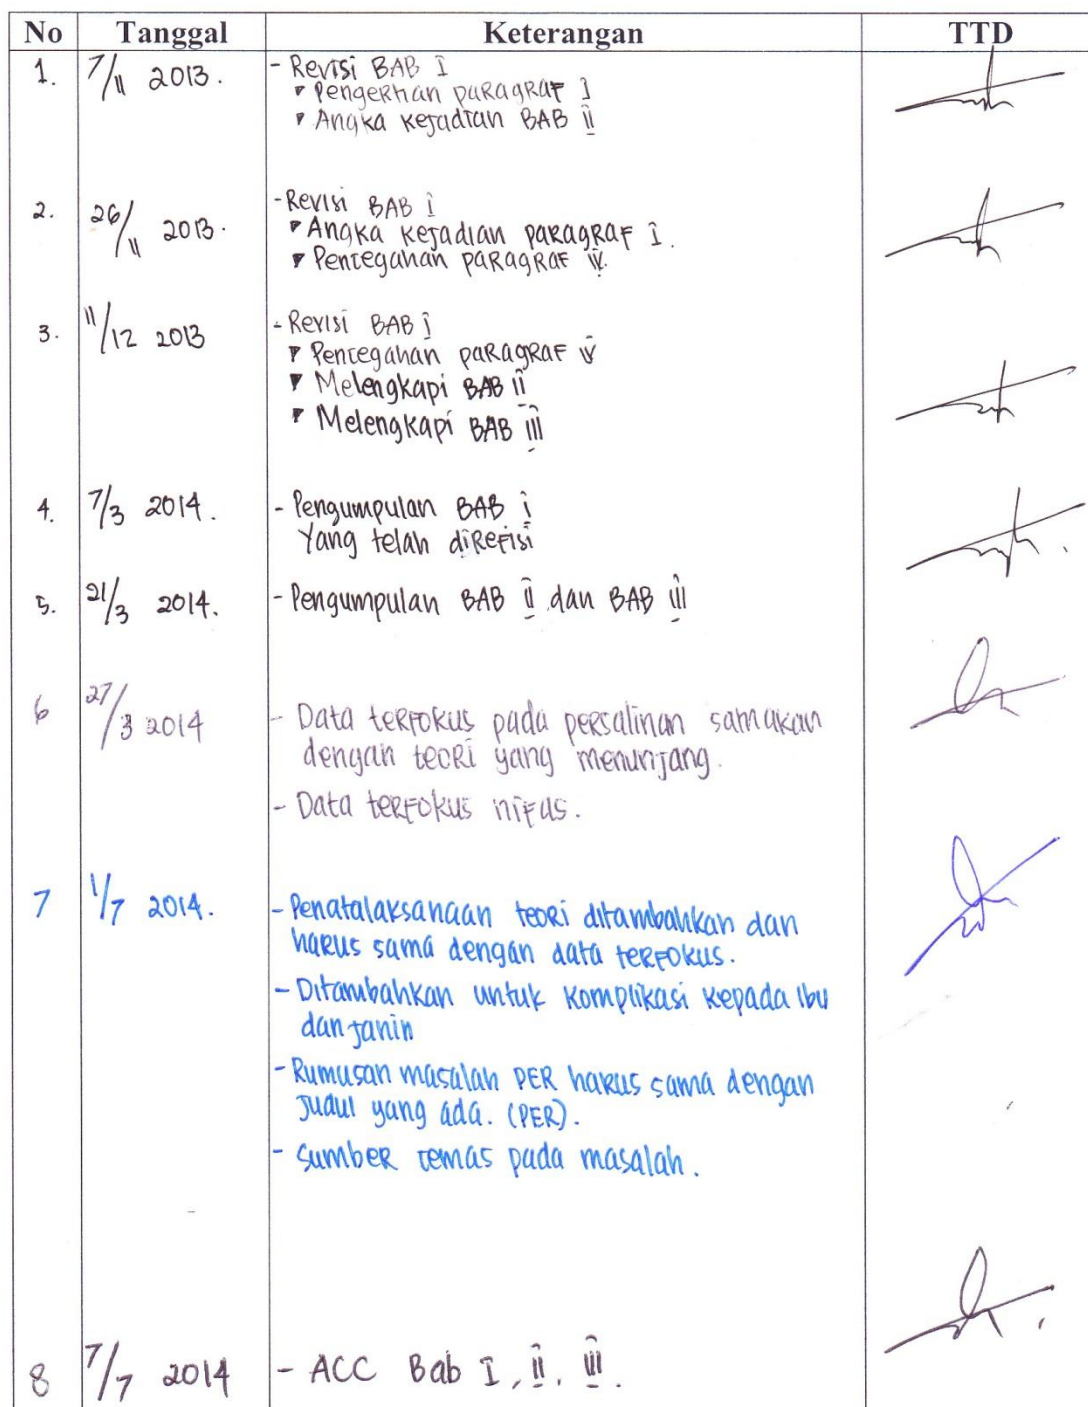 No Tanggal Keterangan TTD
1. 7/11 2013. - Revisi BAB I
Pengertian paragraf I
Angka kejadian BAB II
2. 26/11 2013. - Revisi BAB I
Angka kejadian paragraf I.
Pencegahan paragraf IV.
3. 11/12 2013 - Revisi BAB I
Pencegahan paragraf V
Melengkapi BAB II
Melengkapi BAB III
4. 7/3 2014. - Pengumpulan BAB I
Yang telah direfisi
5. 21/3 2014. - Pengumpulan BAB II dan BAB III
6 27/3 2014 - Data terfokus pada persalinan samakan
dengan teori yang menunjang.
- Data terfokus nifas.
7 1/7 2014. - Penatalaksanaan teori ditambahkan dan
harus sama dengan data terfokus.
- Ditambahkan untuk komplikasi kepada ibu
dan janin
- Rumusan masalah PER harus sama dengan
judul yang ada. (PER).
- Sumber cemas pada masalah.
8 7/7 2014 - ACC Bab I, II, III.